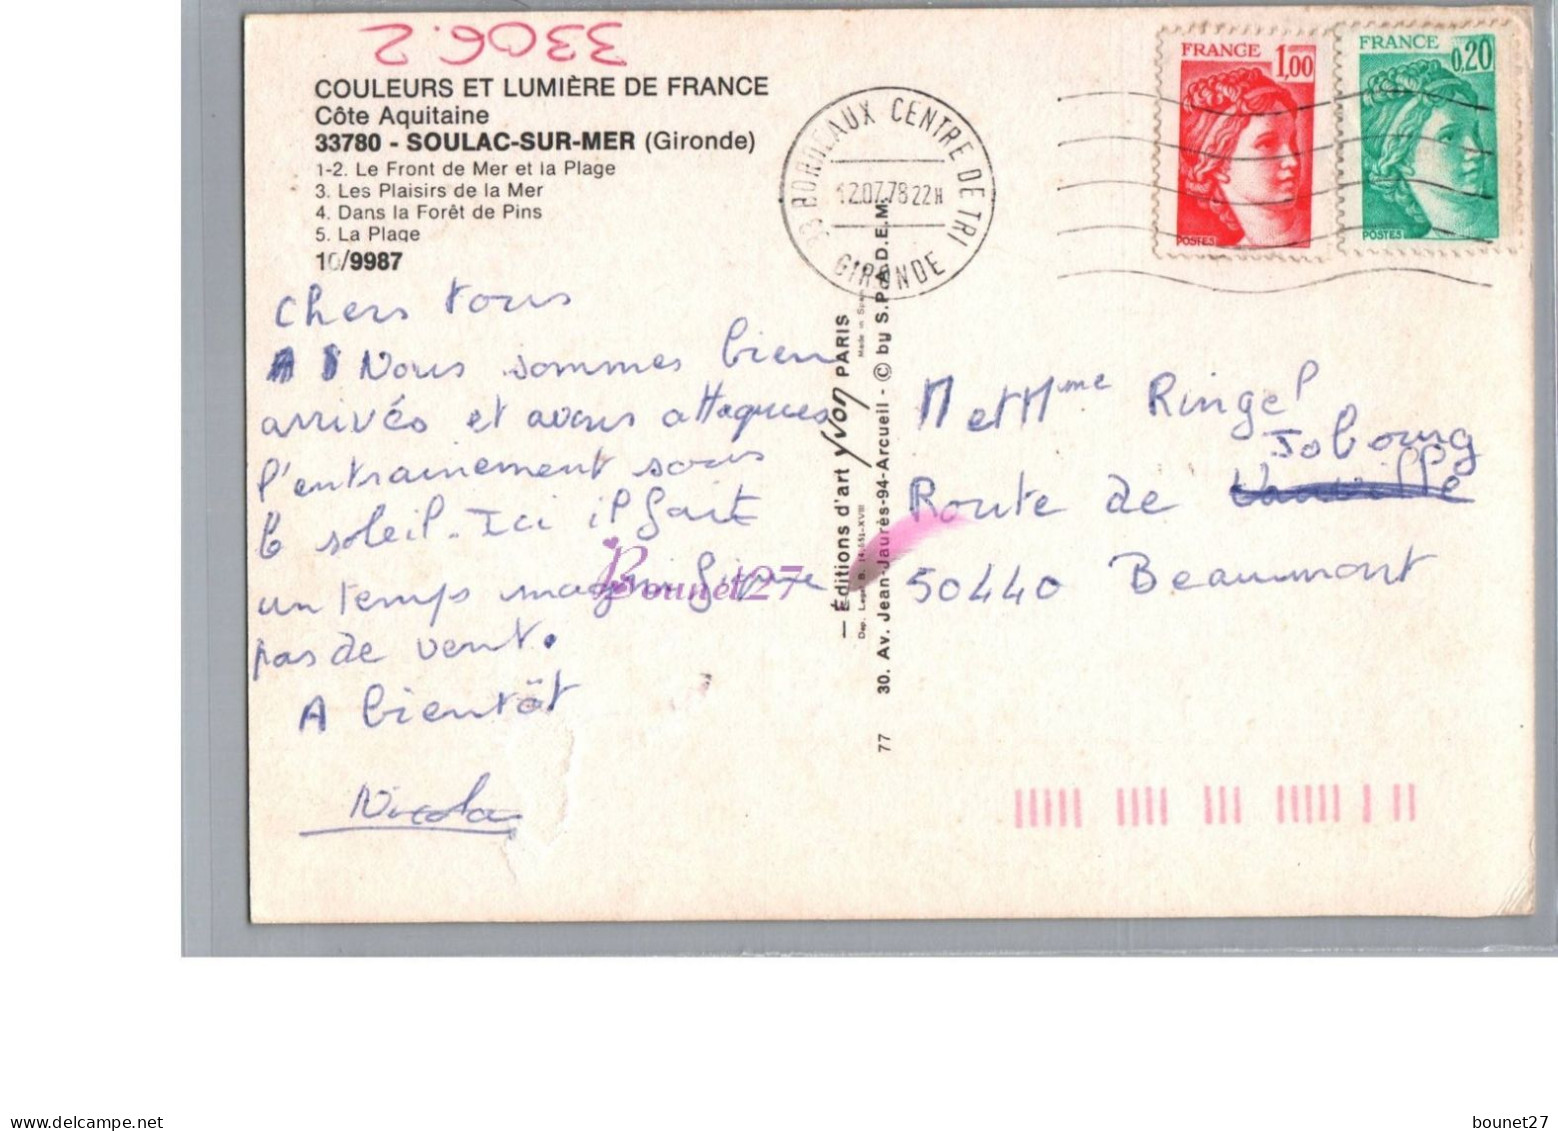 3306.2
COULEURS ET LUMIÈRE DE FRANCE
Côte Aquitaine
33780 - SOULAC-SUR-MER (Gironde)
1-2. Le Front de Mer et la Plage
3. Les Plaisirs de la Mer
4. Dans la Forêt de Pins
5. La Plage
10/9987
Chers tous
Nous sommes bien
arrivés et avons attaques
l'entrainement sous
le soleil. Ici il fait
un temps magnifique
pas de vent.
A bientôt
Nicolas
33 BORDEAUX CENTRE DE TRI
12.07.78 22H
GIRONDE
FRANCE
1,00
POSTES
FRANCE
0,20
POSTES
— Éditions d'art yvon PARIS
Made in Spain
30. Av. Jean-Jaurès-94-Arcueil - © by S.P.A.D.E.M.
77
M et Mme Ringel
Jobourg
Route de Vauville
50440 Beaumont
Bounet27
delcampe.net
bounet27